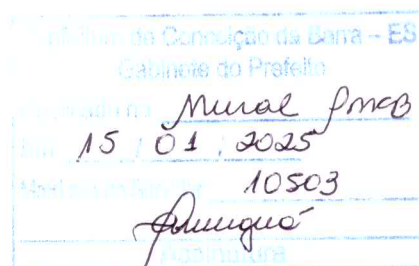 de Conceição da Barra – ES
Gabinete do Prefeito
Mural PMCB
15 / 01 / 2025
10503
Assinatura